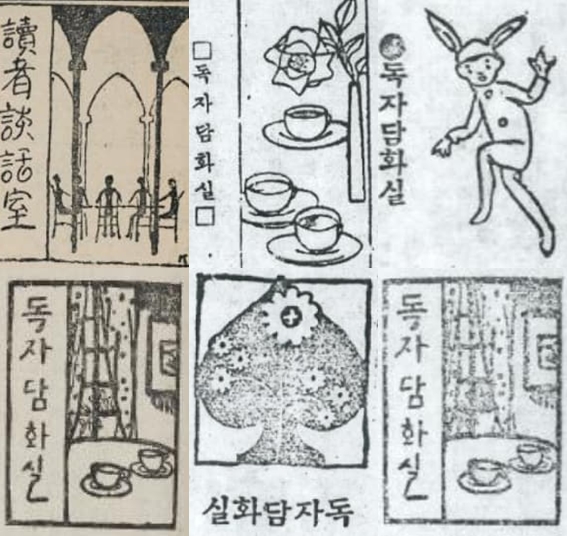 讀者談話室
□독자담화실□
●독자담화실
독자담화실
독자담화실
독자담화실